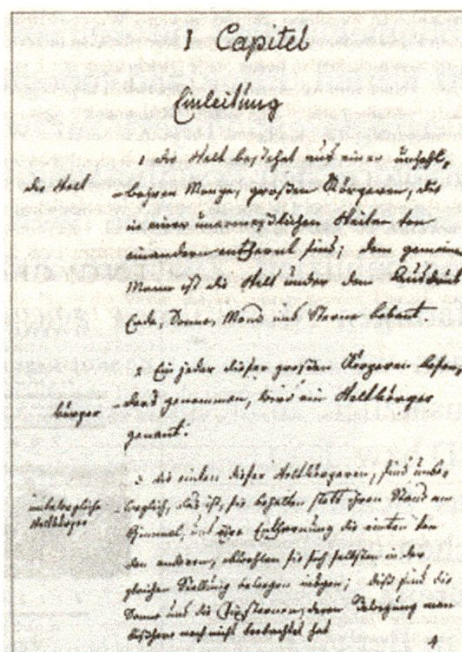 I Capitel
Einleitung
die Welt bestehet aus einer unzahl-
die Welt
baren Menge, großen Körperen, die
in einer unermeßlichen Weite von
einanderen entfernt sind; dem gemeinen
Mann ist die Welt under dem Ausdruk
Erde, Sonne, Mond und Sterne bekant.
2 Ein jeder dieser großen Körperen beson-
körper
ders genommen, wird ein Weltkörper
genant.
3 die einten dieser Weltkörperen, sind unbe-
unbewegliche
Weltkörper
weglich, das ist, sie behalten stets ihren Stand am
Himmel, und ihre Entfernung die einten von
den anderen, obwohlen sie sich selbsten in der
gleichen Stellung bewegen mögen; diß sind die
Sonne und die Fixsternen, deren Bewegung man
bishero noch nicht beobachtet hat
4